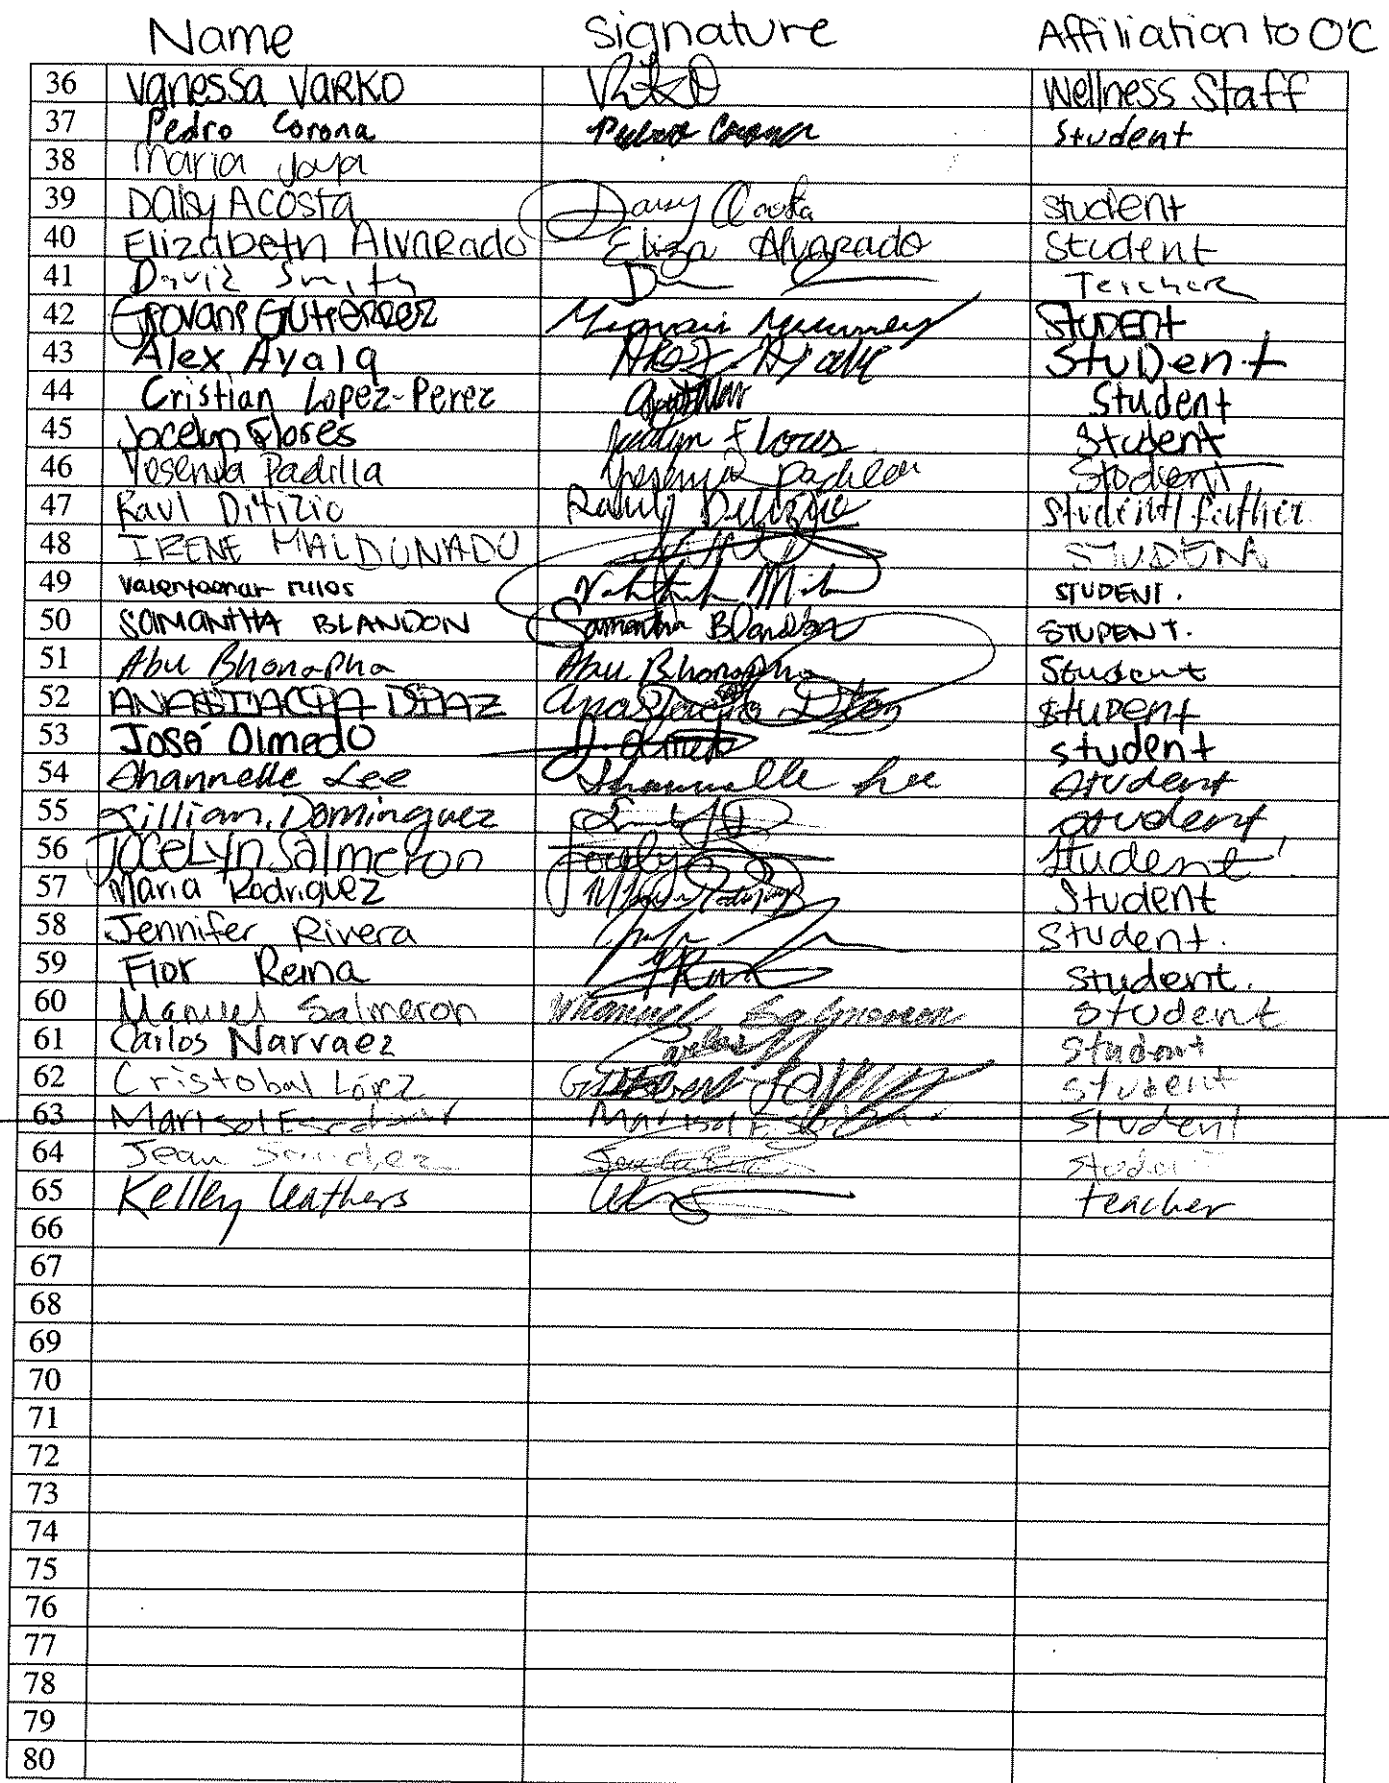 Name Signature Affiliation to OC
36 Vanessa Varko Wellness Staff
37 Pedro Corona Pedro Corona Student
38 Maria Joya
39 Daisy Acosta Daisy Acosta student
40 Elizabeth Alvarado Eliza Alvarado Student
41 David Smith Teacher
42 Giovani Gutierrez STUDENT
43 Alex Ayala Alex Ayala Student
44 Cristian Lopez-Perez Student
45 Jocelyn Flores Jocelyn Flores Student
46 Yesenya Padilla Yesenya Padilla Student
47 Raul Ditizio Raul Ditizio Student/father
48 IRENE MALDONADO STUDENT
49 STUDENT.
50 SAMANTHA BLANDON Samantha Blandon STUDENT.
51 Abu Bhonapha Abu Bhonapha Student
52 ANASTACIA DIAZ Anastacia Diaz student
53 José Olmedo J. Olmedo student
54 Shannelle Lee Shannelle Lee Student
55 Lillian Dominguez student
56 Jocelyn Salmeron Jocelyn Student!
57 Maria Rodriguez Student
58 Jennifer Rivera Student.
59 Flor Reina Student.
60 Manuel Salmeron Manuel Salmeron Student
61 Carlos Narvaez Carlos Student
62 Cristobal López Student
63 Marisol Escobar Marisol Student
64 Jean Sanchez Student
65 Kelley Leathers teacher
66
67
68
69
70
71
72
73
74
75
76
77
78
79
80